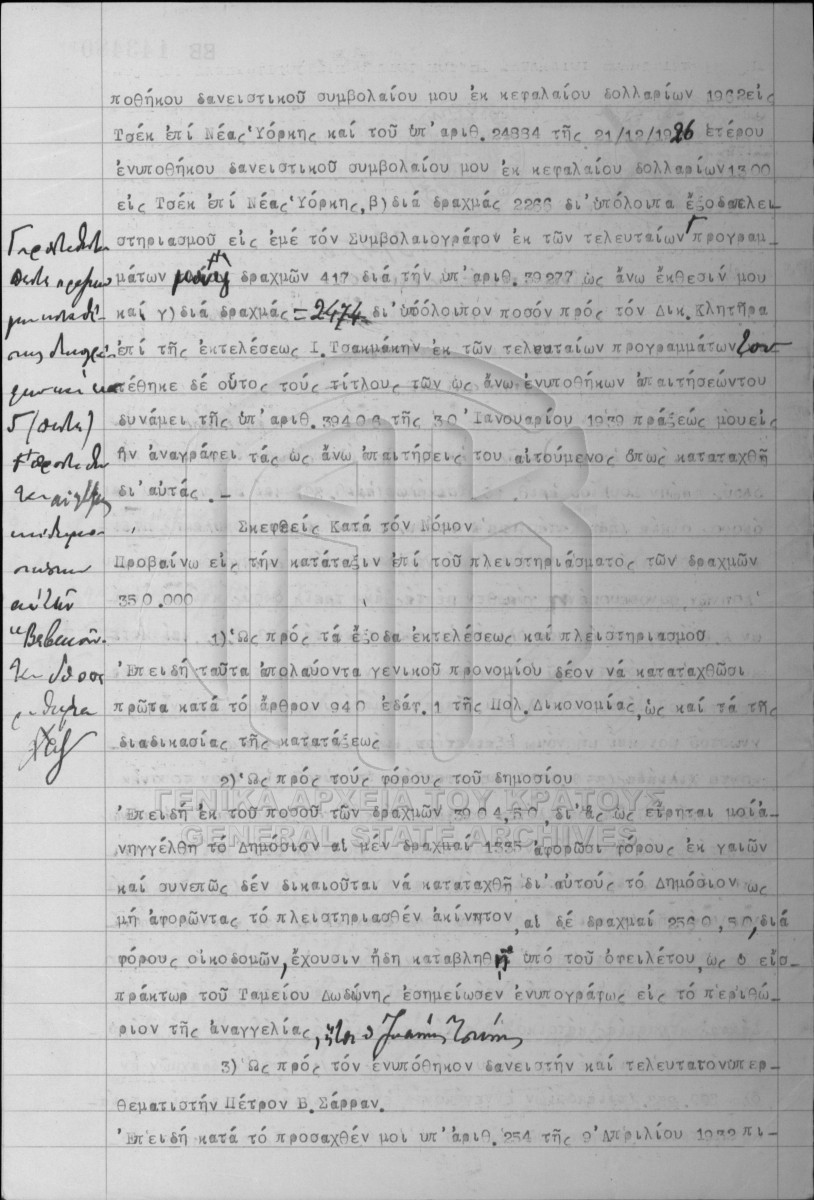 ποθήκου δανειστικοῦ συμβολαίου μου ἐκ κεφαλαίου δολλαρίων 1962εἰς
Τσέκ ἐπί Νέας Ὑόρκης καί τοῦ ὑπ'ἀριθ.24884 τῆς 21/12/1926 ἑτέρου
ἐνυποθήκου δανειστικοῦ συμβολαίου μου ἐκ κεφαλαίου δολλαρίων1300
εἰς Τσέκ ἐπί Νέας Ὑόρκης,β)διά δραχμάς 2266 δι'ὑπόλοιπα ἐξοδαπλει-
στηριασμοῦ εἰς ἐμέ τόν Συμβολαιογράφον ἐκ τῶν τελευταίων προγραμ-
μάτων δραχμῶν 417 διά τήν ὑπ'ἀριθ.39277 ὡς ἄνω ἔκθεσίν μου
καί γ)διά δραχμάς =2474= δι'ὑπόλοιπον ποσόν πρός τόν Δικ.Κλητῆρα
ἐπί τῆς ἐκτελέσεως Ι.Τσακμάκην ἐκ τῶν τελευταίων προγραμμάτων του
τέθηκε δέ οὗτος τούς τίτλους τῶν ὡς ἄνω ἐνυποθήκων ἀπαιτήσεώντου
δυνάμει τῆς ὑπ'ἀριθ.39406 τῆς 30 Ἰανουαρίου 1939 πράξεώς μουεἰς
ἥν ἀναγράφει τάς ὡς ἄνω ἀπαιτήσεις του αἰτούμενος ὅπως καταταχθῆ
δι'αὐτάς.-
Σκεφθείς Κατά τόν Νόμον
Προβαίνω εἰς τήν κατάταξιν ἐπί τοῦ πλειστηριάσματος τῶν δραχμῶν
350.000
1)Ὡς πρός τά ἔξοδα ἐκτελέσεως καί πλειστηριασμοῦ
Ἐπειδή ταῦτα ἀπολαύοντα γενικοῦ προνομίου δέον νά καταταχθῶσι
πρῶτα κατά τό ἄρθρον 940 ἐδάφ.1 τῆς Πολ.Δικονομίας,ὡς καί τά τῆς
διαδικασίας τῆς κατατάξεως
2)Ὡς πρός τούς φόρους τοῦ δημοσίου
Ἐπειδή ἐκ τοῦ ποσοῦ τῶν δραχμῶν 3904,50,δι'ἅς ὡς εἴρηται μοίἀ-
νηγγέλθη τό Δημόσιον αἱ μέν δραχμαί 1335 ἀφορῶσι φόρους ἐκ γαιῶν
καί συνεπῶς δέν δικαιοῦται νά καταταχθῆ δι'αὐτούς τό Δημόσιον ὡς
μή ἀφορῶντας τό πλειστηριασθέν ἀκίνητον,αἱ δέ δραχμαί 2560,50,διά
φόρους οἰκοδομῶν,ἔχουσιν ἤδη καταβληθῆ ὑπό τοῦ ὀφειλέτου,ὡς ὁ εἰσ-
πράκτωρ τοῦ Ταμείου Δωδώνης ἐσημείωσεν ἐνυπογράφως εἰς τό περιθώ-
ριον τῆς ἀναγγελίας,
3)Ὡς πρός τόν ἐνυπόθηκον δανειστήν καί τελευταῖονὑπερ-
θεματιστήν Πέτρον Β.Σάρραν.
Ἐπειδή κατά τό προσαχθέν μοι ὑπ'ἀριθ.254 τῆς 9 Ἀπριλίου 1932 πι-
ΓΕΝΙΚΑ ΑΡΧΕΙΑ ΤΟΥ ΚΡΑΤΟΥΣ
GENERAL STATE ARCHIVES